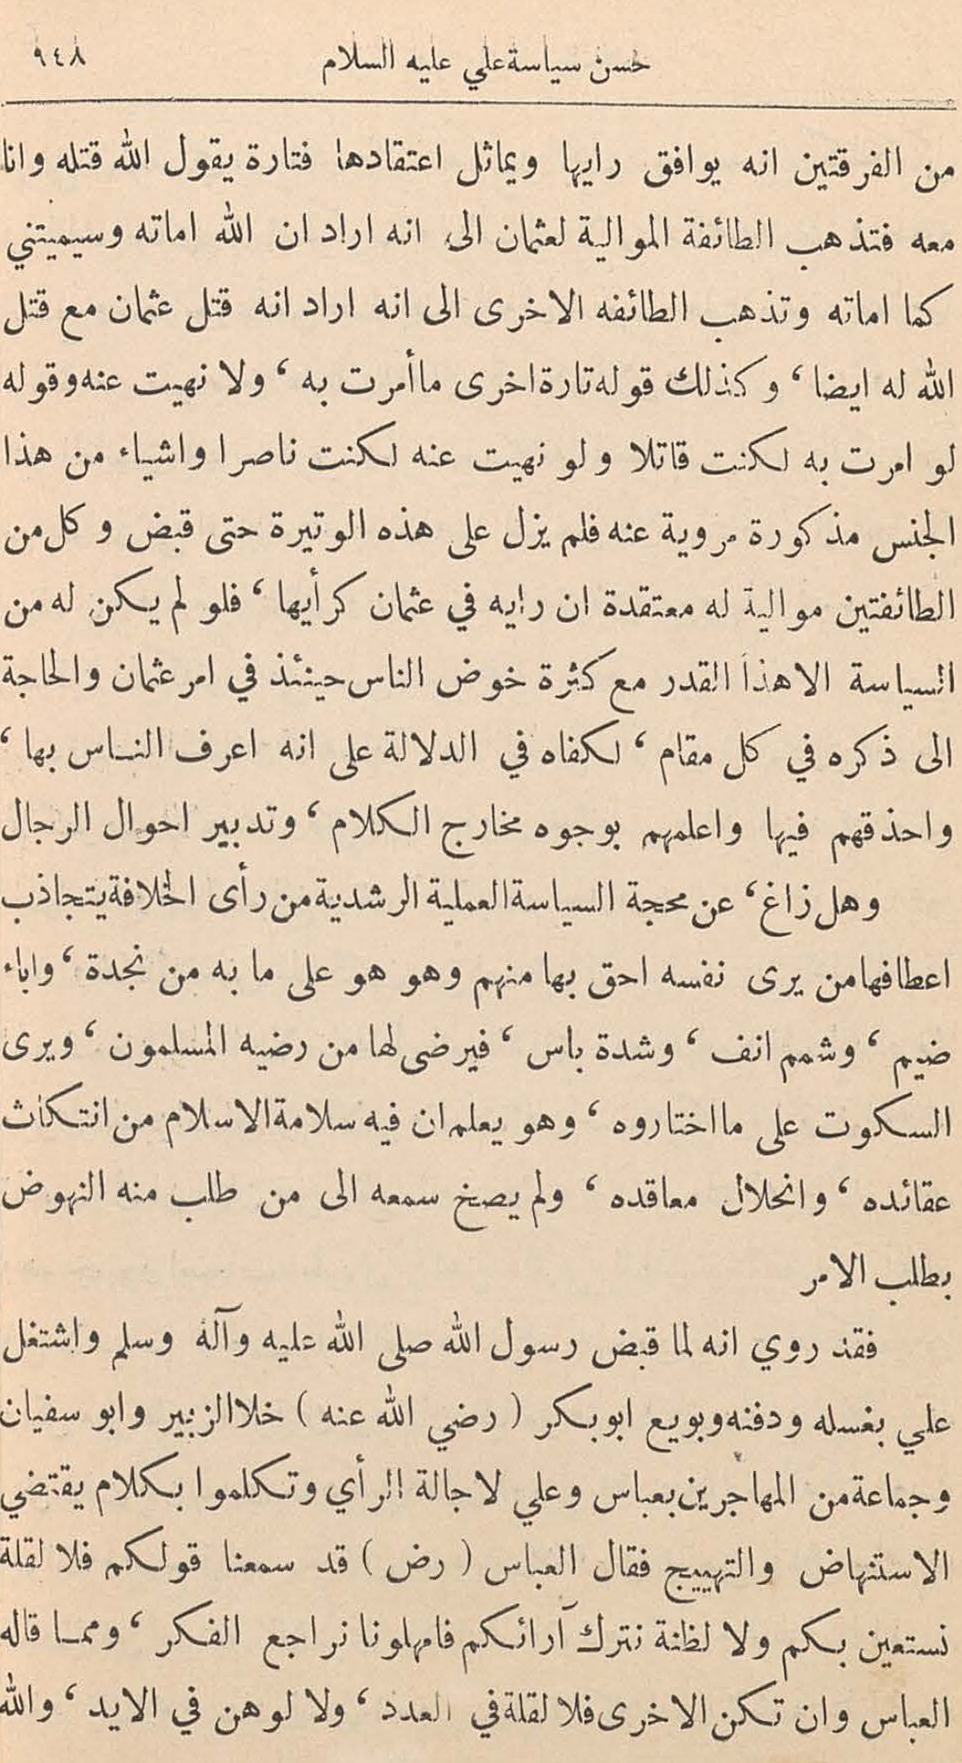 حسن سياسة علي عليه السلام ٩٤٨
من الفرقتين انه يوافق رايها ويماثل اعتقادها فتارة يقول الله قتله وانا
معه فتذهب الطائفة الموالية لعثمان الى انه اراد ان الله اماته وسيميتني
كما اماته وتذهب الطائفه الاخرى الى انه اراد انه قتل عثمان مع قتل
الله له ايضا ، وكذلك قوله تارة اخرى ما أمرت به ، ولا نهيت عنه وقوله
لو امرت به لكنت قاتلا ولو نهيت عنه لكنت ناصرا واشياء من هذا
الجنس مذكورة مروية عنه فلم يزل على هذه الوتيرة حتى قبض وكل من
الطائفتين موالية له معتقدة ان رايه في عثمان كرأيها ، فلو لم يكن له من
السياسة الا هذا القدر مع كثرة خوض الناس حينئذ في امر عثمان والحاجة
الى ذكره في كل مقام ، لكفاه في الدلالة على انه اعرف الناس بها ،
واحذقهم فيها واعلمهم بوجوه مخارج الكلام ، وتدبير احوال الرجال
وهل زاغ ، عن محجة السياسة العملية الرشدية من رأى الخلافة يتجاذب
اعطافها من يرى نفسه احق بها منهم وهو هو على ما به من نجدة ، واباء
ضيم ، وشمم انف ، وشدة باس ، فيرضى لها من رضيه المسلمون ، ويرى
السكوت على ما اختاروه ، وهو يعلم ان فيه سلامة الاسلام من انتكاث
عقائده ، وانحلال معاقده ، ولم يصخ سمعه الى من طلب منه النهوض
بطلب الامر
فقد روي انه لما قبض رسول الله صلى الله عليه وآله وسلم واشتغل
علي بغسله ودفنه وبويع ابو بكر ( رضي الله عنه ) خلا الزبير وابو سفيان
وجماعة من المهاجرين بعباس وعلي لاجالة الرأي وتكلموا بكلام يقتضي
الاستنهاض والتهييج فقال العباس ( رض ) قد سمعنا قولكم فلا لقلة
نستعين بكم ولا لظنة نترك آرائكم فامهلونا نراجع الفكر ، ومما قاله
العباس وان تكن الاخرى فلا لقلة في العدد ، ولا لوهن في الايد ، والله